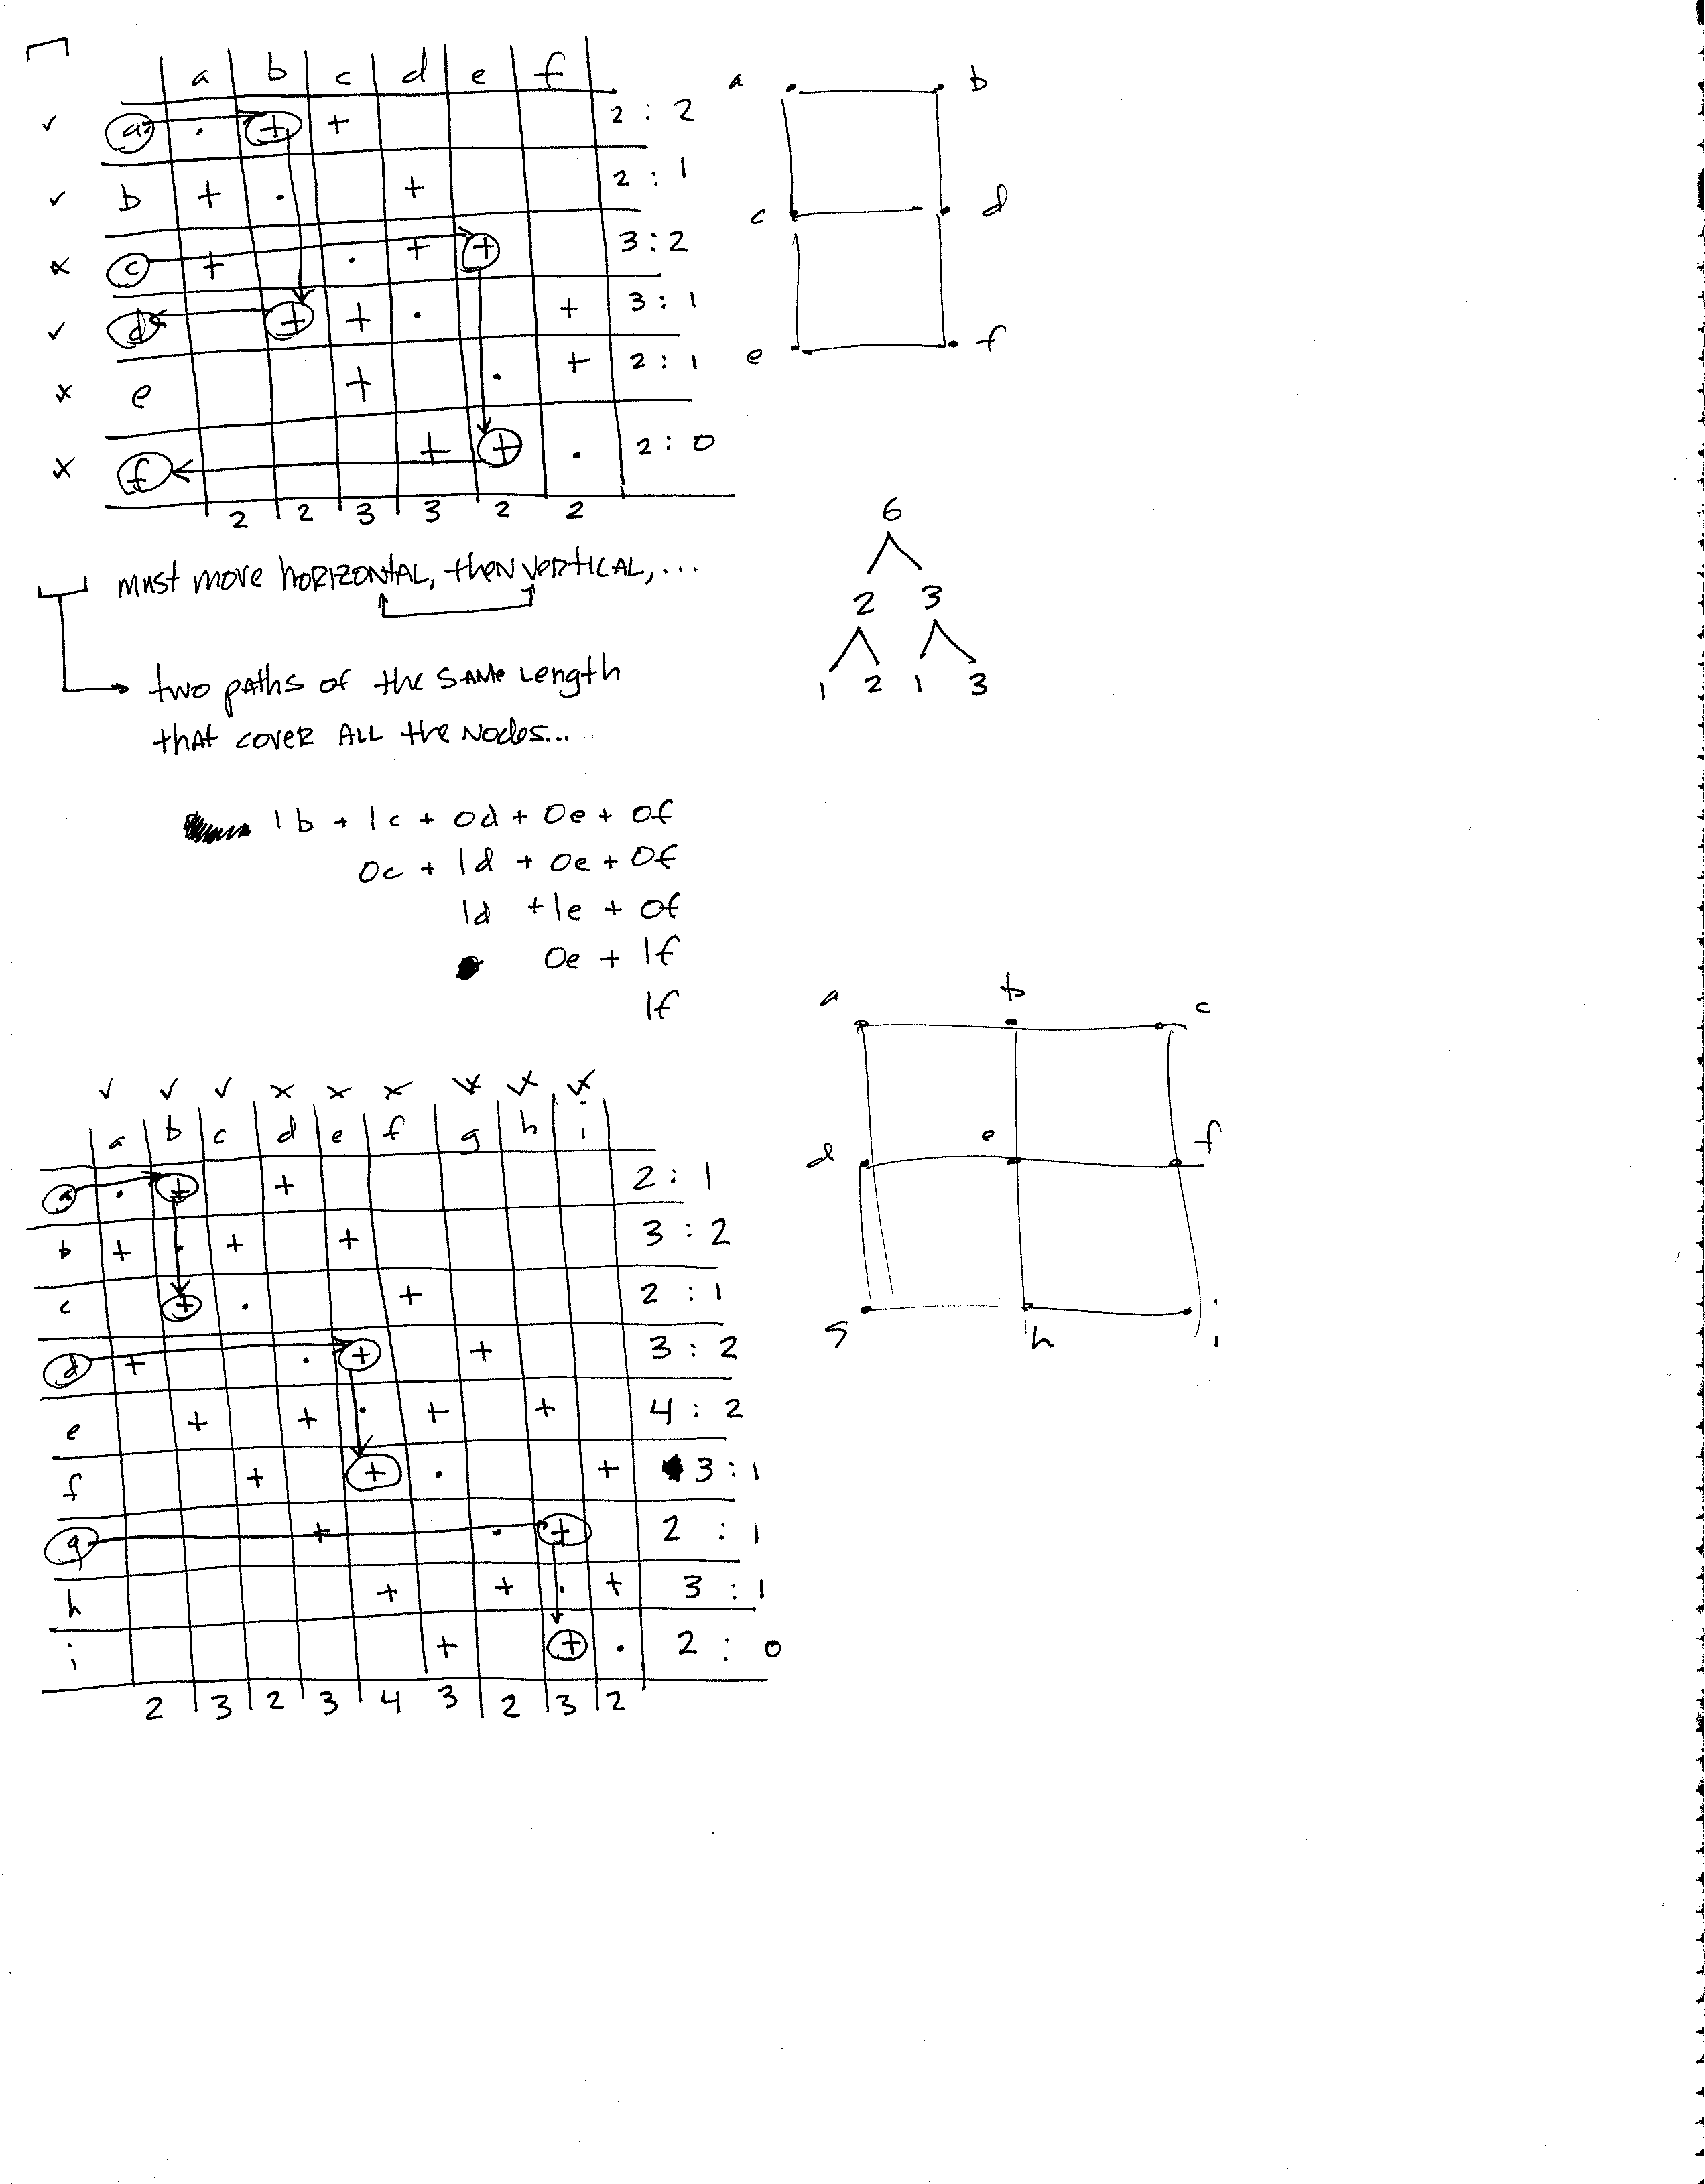 a b c d e f
✓ a . + + 2 : 2
✓ b + . + 2 : 1
x c + . + + 3 : 2
✓ d + + . + 3 : 1
x e + . + 2 : 1
x f + + . 2 : 0
2 2 3 3 2 2
a b
c d
e f
must move HORIZONTAL, then VERTICAL, ...
6
2 3
1 2 1 3
two paths of the same length
that cover ALL the nodes...
1b + 1c + 0d + 0e + 0f
0c + 1d + 0e + 0f
1d + 1e + 0f
0e + 1f
1f
a b c
d e f
g h i
✓ ✓ ✓ x x x
a b c d e f g h i
a . + + 2 : 1
b + . + + 3 : 2
c + . + 2 : 1
d + . + + 3 : 2
e + + . + + 4 : 2
f + + . + 3 : 1
g + . + 2 : 1
h + + . + 3 : 1
i + + . 2 : 0
2 3 2 3 4 3 2 3 2